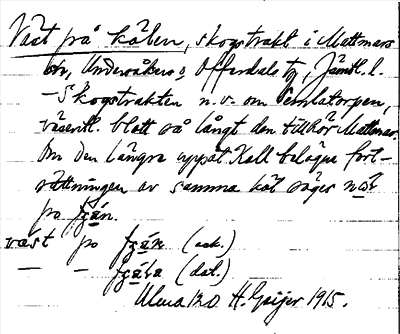 Väst på kölen, skogstrakt i Mattmars
sn, Undersåkers o Offerdals tg, Jämtl. l.
— Skogstrakten n.v. om Semlatorpen,
väsentl. blott så långt den tillhör Mattmar.
Om den längre uppåt Kall belägna fort-
sättningen av samma köl säges
po
väst po (ack.)
— — (dat.)
H. Geijer 1915.